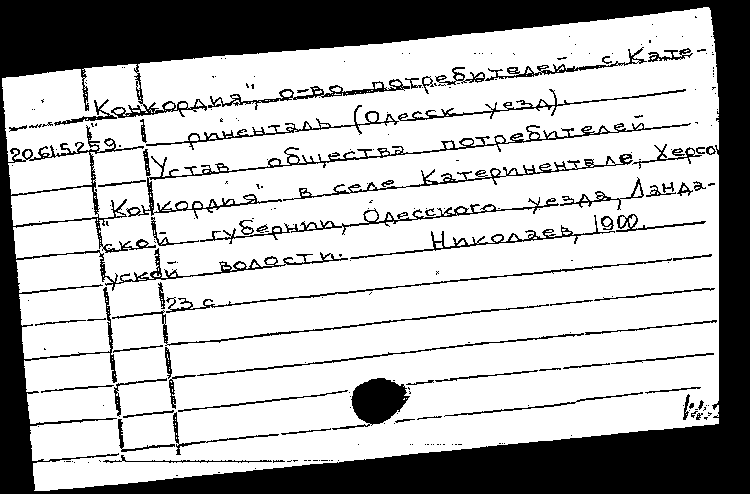 "Конкордия", о-во потребителей с. Кате-
риненталь (Одесск уезд).
20.61.5.259.
Устав общества потребителей
"Конкордия" в селе Катеринентале, Херсон
ской губернии, Одесского уезда, Ланда-
уской волости. Николаев, 1900.
23 с.